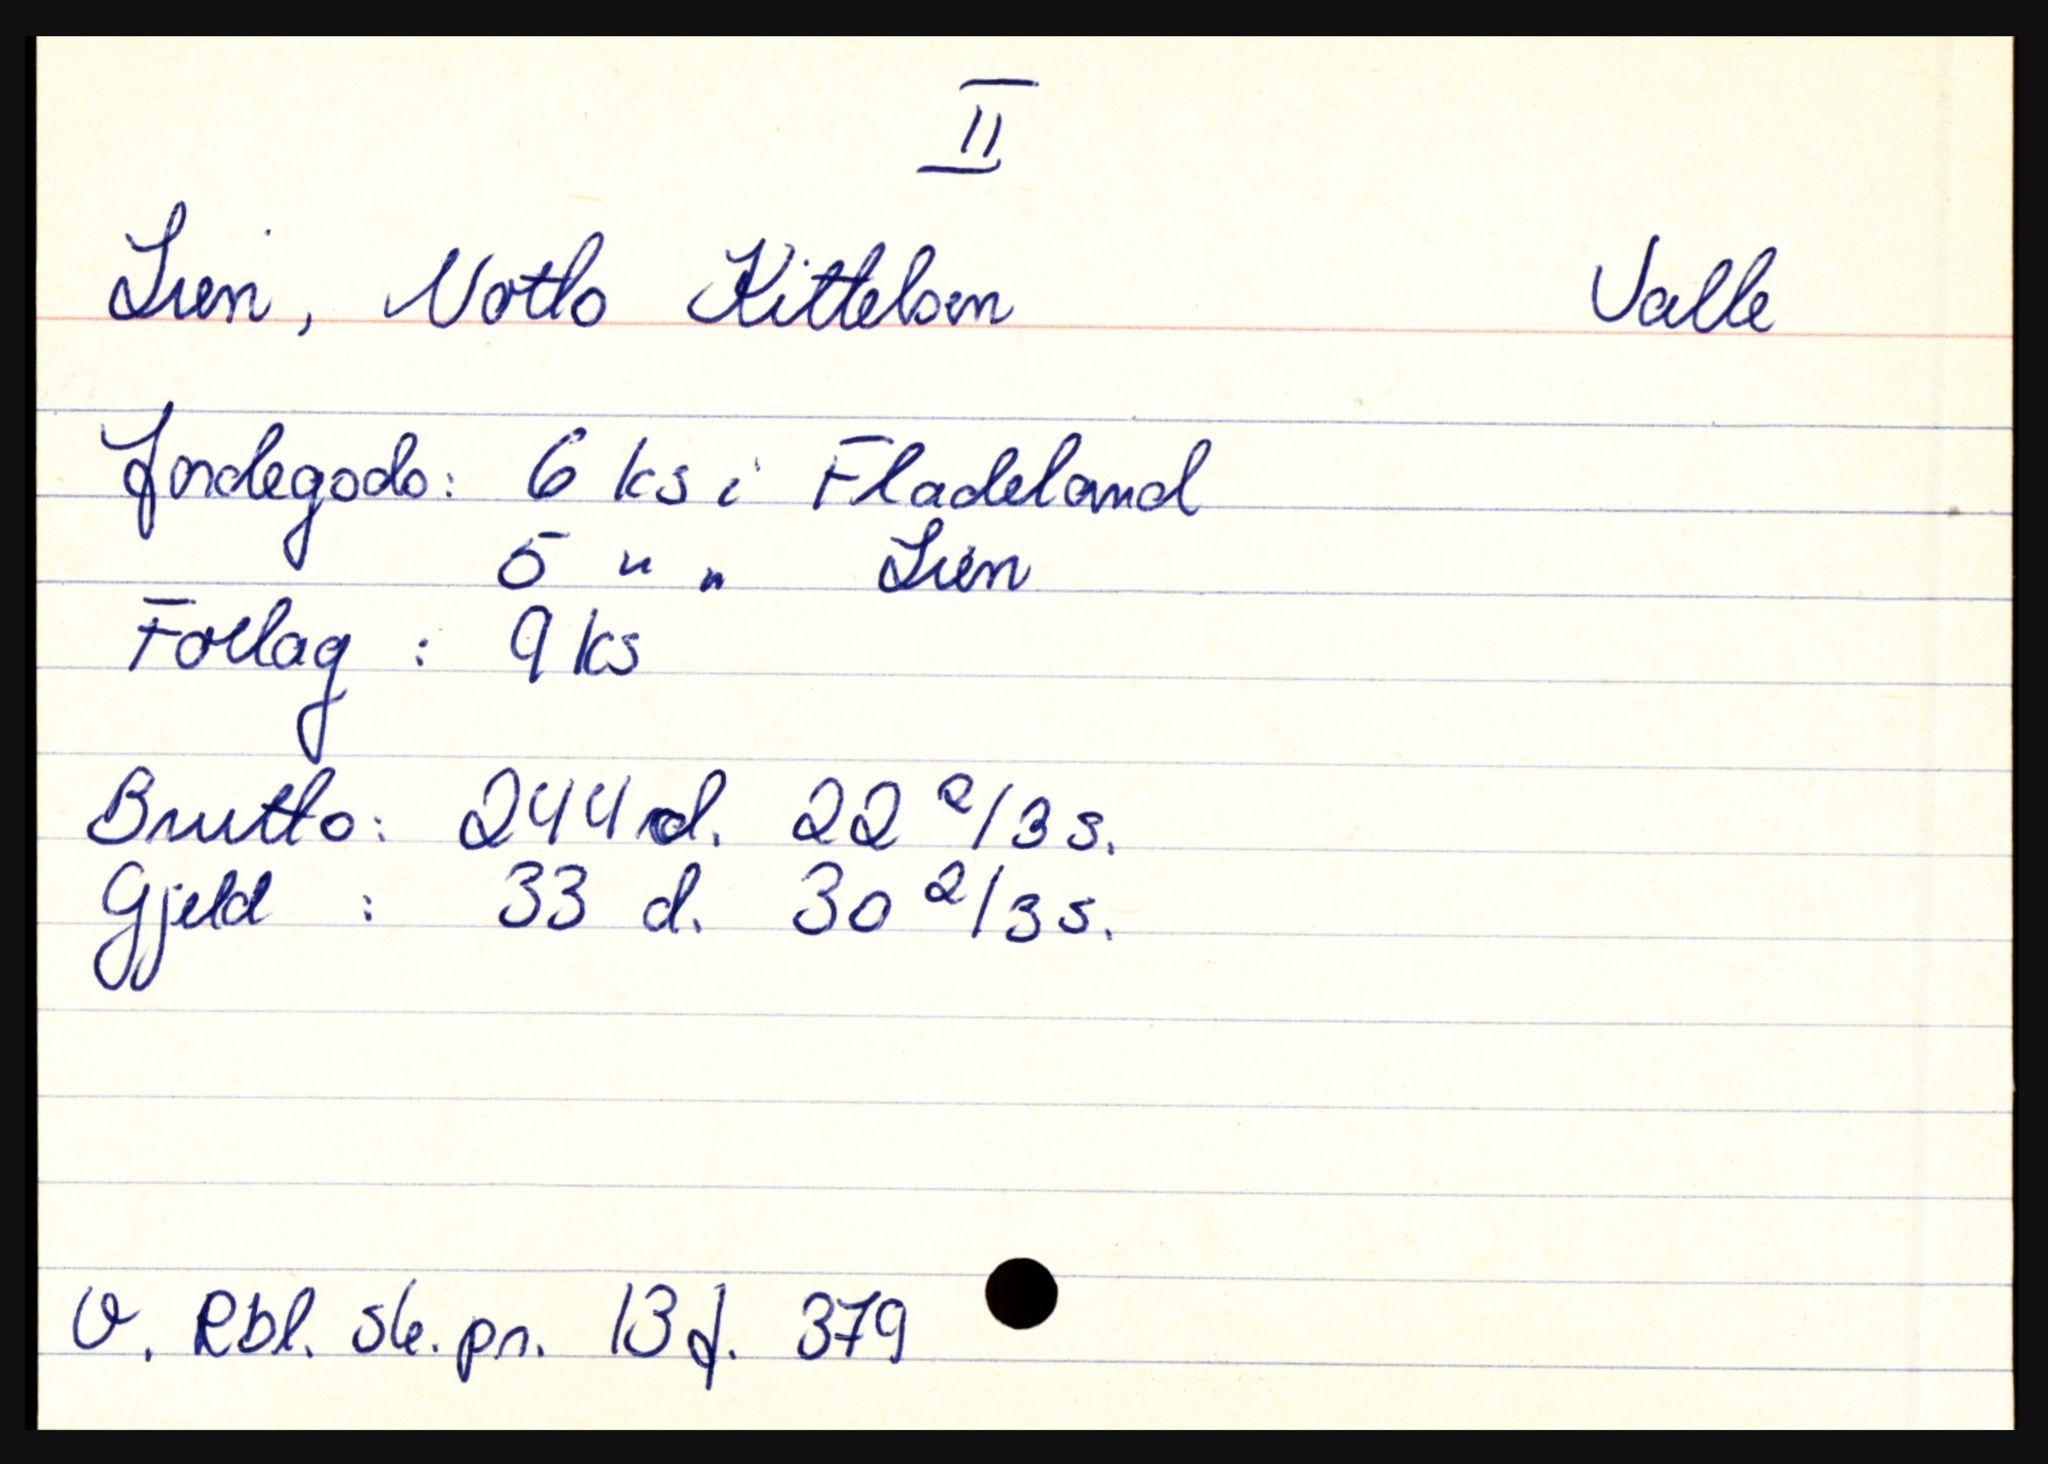 II
Lien, Notto Kittelsen Valle
Jordegods: 6 ks i Fladeland
5 " " Lien
Forlag : 9 ks
Brutto: 244 d. 22 2/3 s.
Gjeld : 33 d. 30 2/3 s.
V. Rbl. sk. pr. 13 f. 379